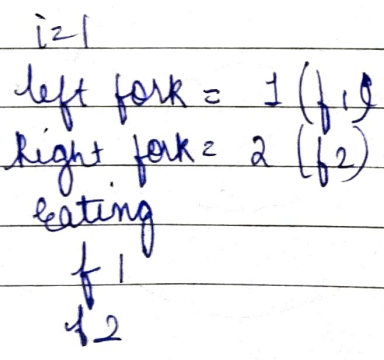 i=1
left fork = 1 (f1)
Right fork = 2 (f2)
eating
f1
f2